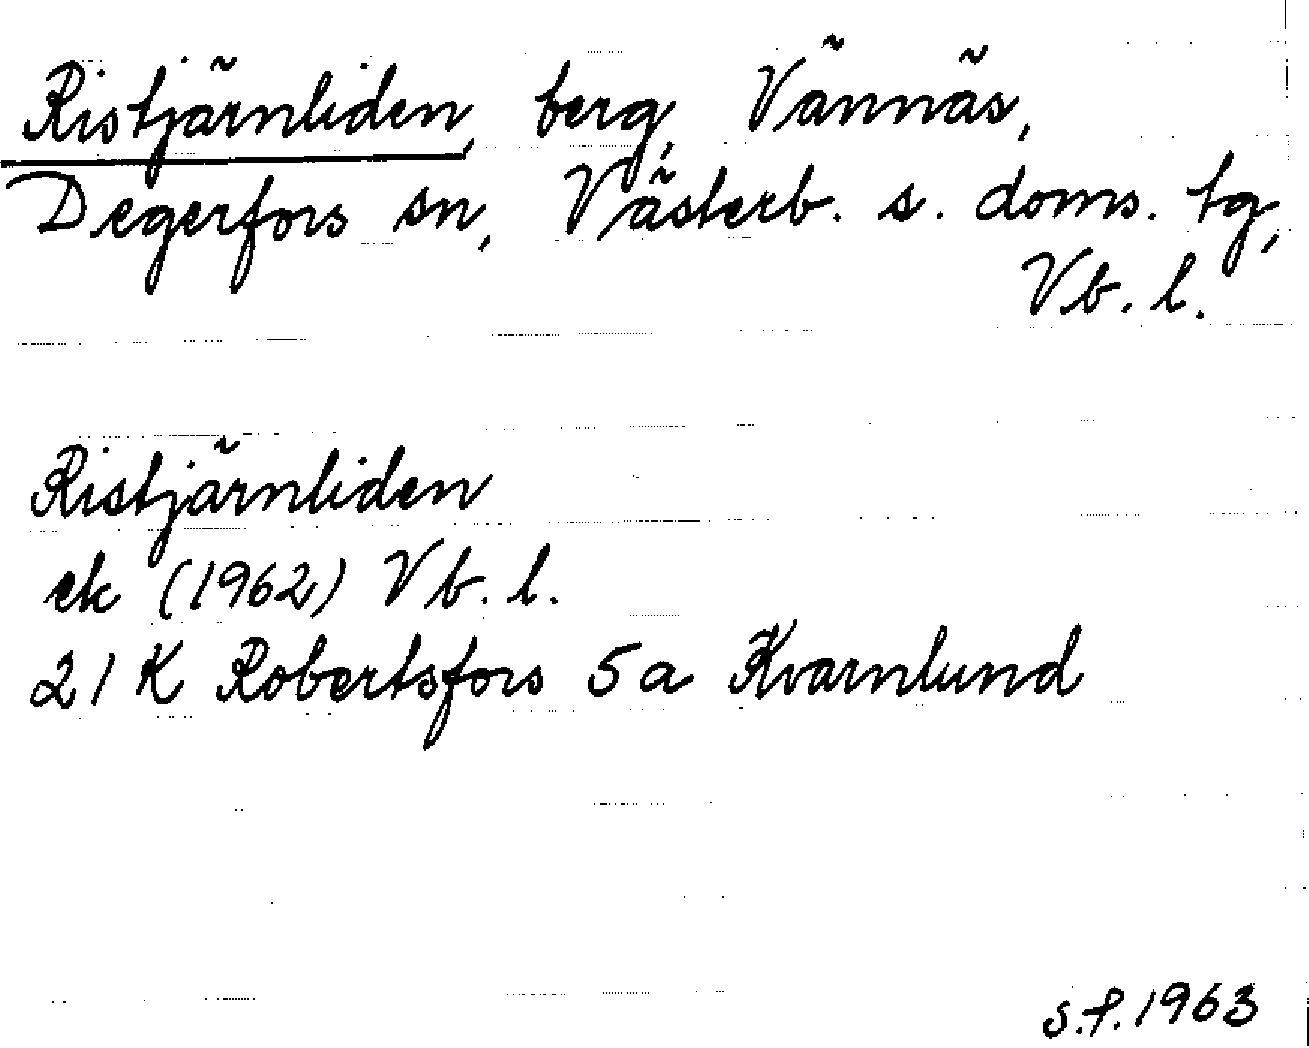 Ristjärnliden, berg, Vännäs,
Degerfors sn, Västerb. s. doms. tg,
Vb. l.
Ristjärnliden
ek (1962) Vb. l.
21 K Robertsfors 5 a Kvarnlund
S.f. 1963